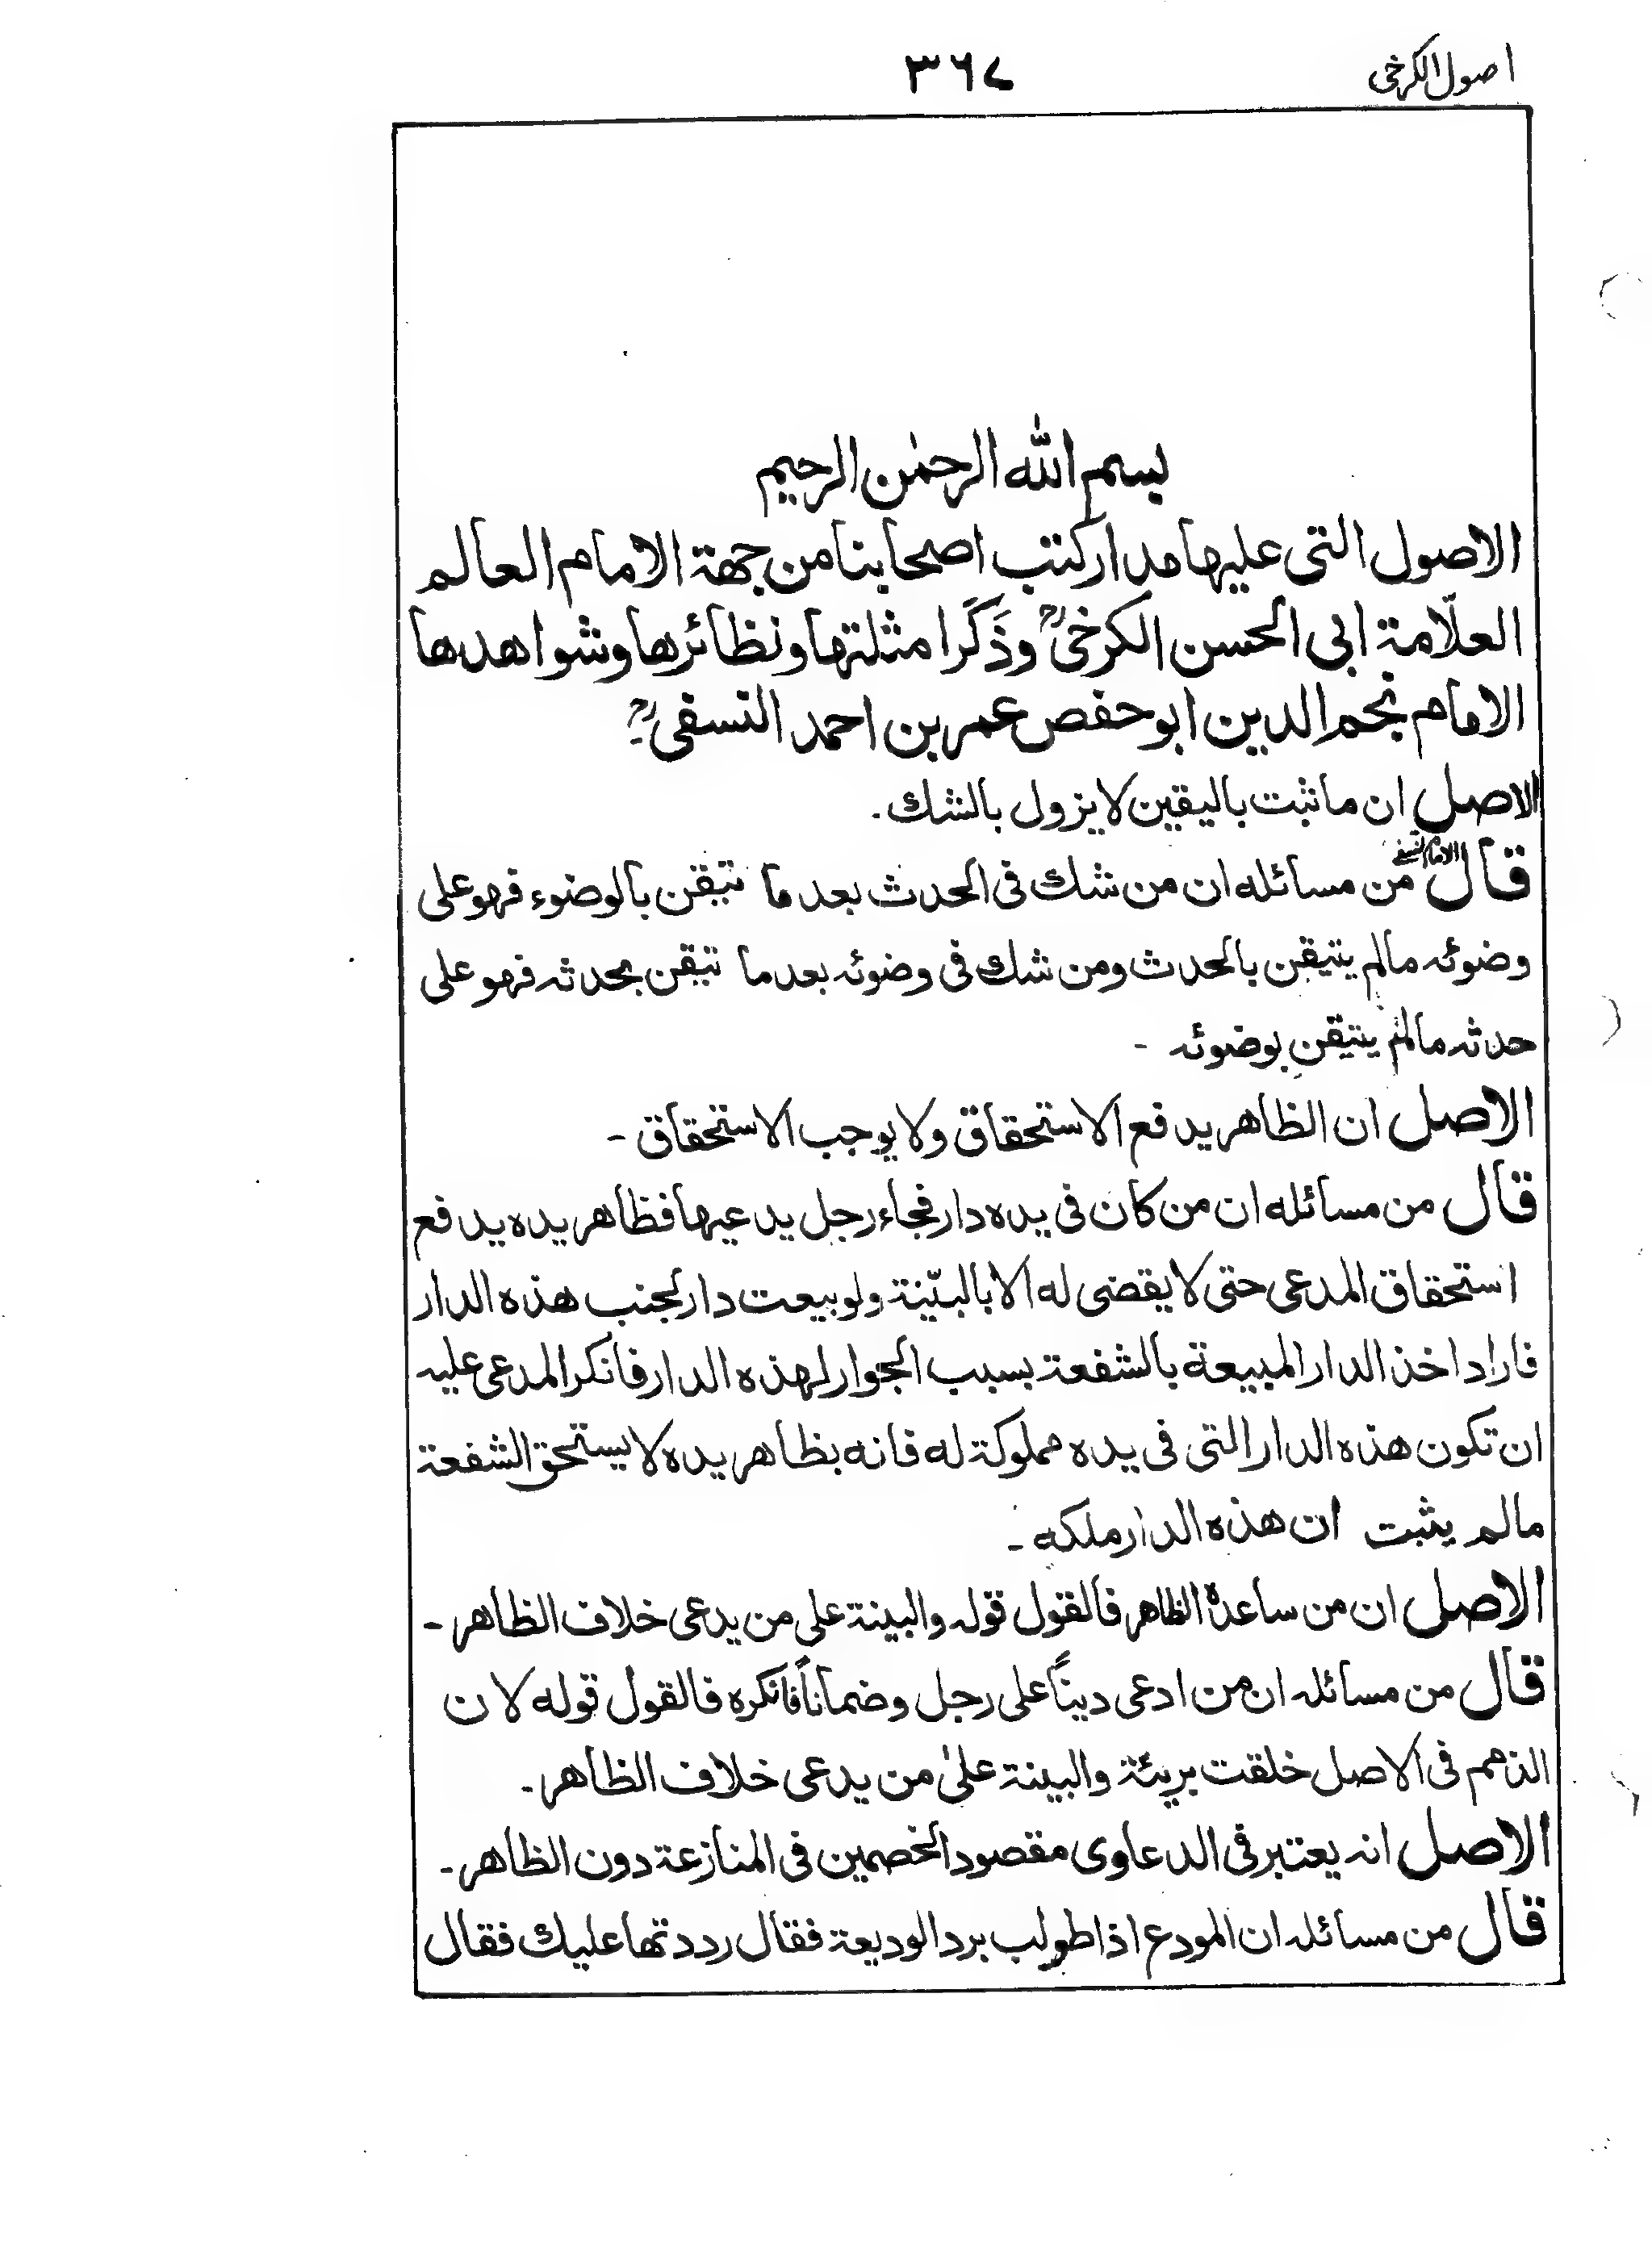 اصول الكرخى
٣٦٧
بسم الله الرحمٰن الرحيم
الاصول التى عليها مدار كتب اصحابنا من جهة الامام العالم
العلّامة ابى الحسن الكرخىؒ وذَكَرا مثلتها ونظائرها وشواهدها
الامام نجم الدين ابو حفص عمر بن احمد النسفىؒ
الاصل ان ما ثبت باليقين لا يزول بالشك.
قال الامام النسفى من مسائله ان من شك فى الحدث بعد ما تيقن بالوضوء فهو على
وضوئه مالم يتيقن بالحدث ومن شك فى وضوئه بعد ما تيقن بحدثه فهو على
حدثه مالم يتيقن بوضوئه -
الاصل ان الظاهر يدفع الاستحقاق ولا يوجب الاستحقاق -
قال من مسائله ان من كان فى يده دار فجاء رجل يدعيها فظاهر يده يدفع
استحقاق المدعى حتى لا يقضى له الا بالبيّنة ولو بيعت دار لجنب هذه الدار
فاراد اخذ الدار المبيعة بالشفعة بسبب الجوار لهذه الدار فانكر المدعى عليه
ان تكون هذه الدار التى فى يده مملوكة له فانه بظاهر يده لا يستحق الشفعة
مالم يثبت ان هذه الدار ملكه -
الاصل ان من ساعده الظاهر فالقول قوله والبينة على من يدعى خلاف الظاهر -
قال من مسائله ان من ادعى ديناً على رجل وضماناً فانكره فالقول قوله لان
الذمم فى الاصل خلقت بريئة والبينة علىٰ من يدعى خلاف الظاهر -
الاصل انه يعتبر فى الدعاوى مقصود الخصمين فى المنازعة دون الظاهر -
قال من مسائله ان المودع اذا طولب برد الوديعة فقال رددتها عليك فقال